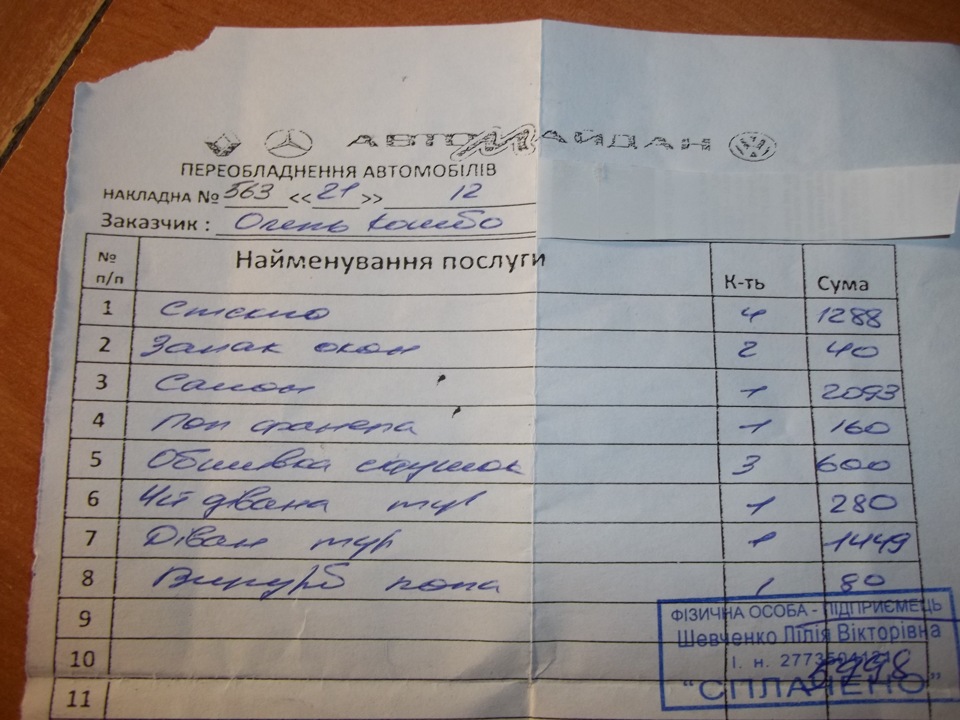 АВТОМАЙДАН
ПЕРЕОБЛАДНЕННЯ АВТОМОБІЛІВ
НАКЛАДНА № 563 <<21>> 12
Заказчик :
№ п/п Найменування послуги К-ть Сума
1 Стекло 4 1288
2 Замак окон 2 40
3 Салон 1 2093
4 Пол фанера 1 160
5 Обшивка 3 600
6 дівана 1 280
7 Діван 1 1449
8 пола 1 80
9
10
11
ФІЗИЧНА ОСОБА - ПІДПРИЄМЕЦЬ
Шевченко Лілія Вікторівна
І. н.
"СПЛАЧЕНО"